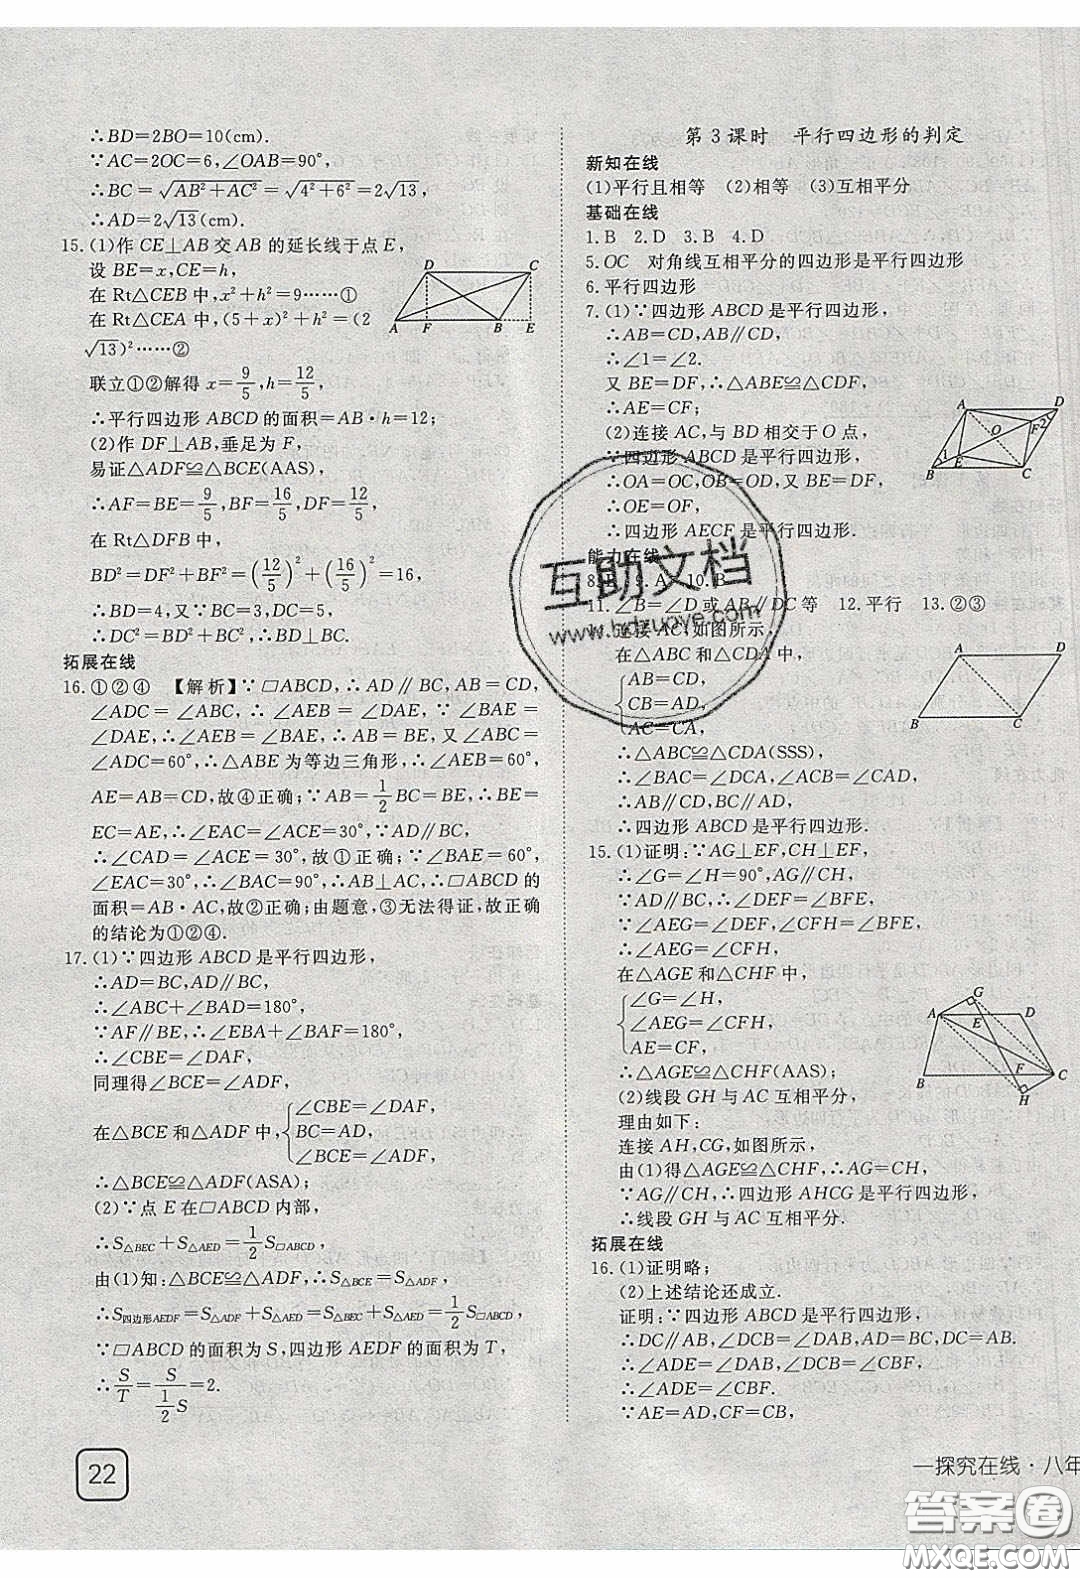 ∴BD=2BO=10(cm).
∵AC=2OC=6,∠OAB=90°,
∴BC=√(AB²+AC²)=√(4²+6²)=2√13,
∴AD=2√13(cm).
15.(1)作CE⊥AB交AB的延长线于点E,
设BE=x,CE=h,
在Rt△CEB中,x²+h²=9……①
在Rt△CEA中,(5+x)²+h²=(2
√13)²……②
联立①②解得x=9/5,h=12/5,
∴平行四边形ABCD的面积=AB·h=12;
(2)作DF⊥AB,垂足为F,
易证△ADF≌△BCE(AAS),
∴AF=BE=9/5,BF=16/5,DF=12/5,
在Rt△DFB中,
BD²=DF²+BF²=(12/5)²+(16/5)²=16,
∴BD=4,又∵BC=3,DC=5,
∴DC²=BD²+BC²,∴BD⊥BC.
拓展在线
16.①②④ 【解析】∵□ABCD,∴AD∥BC,AB=CD,
∠ADC=∠ABC,∴∠AEB=∠DAE,∵∠BAE=
∠DAE,∴∠AEB=∠BAE,∴AB=BE,又∵∠ABC=
∠ADC=60°,∴△ABE为等边三角形,∴∠AEB=60°,
AE=AB=CD,故④正确;∵AB=1/2BC=BE,∴BE=
EC=AE,∴∠EAC=∠ACE=30°,∵AD∥BC,
∴∠CAD=∠ACE=30°,故①正确;∵∠BAE=60°,
∠EAC=30°,∴∠BAC=90°,∴AB⊥AC,∴□ABCD的
面积=AB·AC,故②正确;由题意,③无法得证,故正确
的结论为①②④.
17.(1)∵四边形ABCD是平行四边形,
∴AD=BC,AD∥BC,
∴∠ABC+∠BAD=180°,
∵AF∥BE,∴∠EBA+∠BAF=180°,
∴∠CBE=∠DAF,
同理得∠BCE=∠ADF,
在△BCE和△ADF中,{∠CBE=∠DAF,
BC=AD,
∠BCE=∠ADF,
∴△BCE≌△ADF(ASA);
(2)∵点E在□ABCD内部,
∴S△BEC+S△AED=1/2S□ABCD,
由(1)知:△BCE≌△ADF,∴S△BCE=S△ADF,
∴S四边形AEDF=S△ADF+S△AED=S△BEC+S△AED=1/2S□ABCD,
∵□ABCD的面积为S,四边形AEDF的面积为T,
∴S/T=S/(1/2S)=2.
22
第3课时 平行四边形的判定
新知在线
(1)平行且相等 (2)相等 (3)互相平分
基础在线
1.B 2.D 3.B 4.D
5.OC 对角线互相平分的四边形是平行四边形
6.平行四边形
7.(1)∵四边形ABCD是平行四边形,
∴AB=CD,AB∥CD,
∴∠1=∠2.
又BE=DF,∴△ABE≌△CDF,
∴AE=CF;
(2)连接AC,与BD相交于O点,
∵四边形ABCD是平行四边形,
∴OA=OC,OB=OD,又BE=DF,
∴OE=OF,
∴四边形AECF是平行四边形.
能力在线
9.A 10.B
11.∠B=∠D或AB∥DC等 12.平行 13.②③
连接AC,如图所示,
在△ABC和△CDA中,
{AB=CD,
CB=AD,
AC=CA,
∴△ABC≌△CDA(SSS),
∴∠BAC=∠DCA,∠ACB=∠CAD,
∴AB∥CD,BC∥AD,
∴四边形ABCD是平行四边形.
15.(1)证明:∵AG⊥EF,CH⊥EF,
∴∠G=∠H=90°,AG∥CH,
∵AD∥BC,
∴∠AEG=∠DEF,∠CFH=∠BFE,
∴∠AEG=∠CFH,
在△AGE和△CHF中,
{∠G=∠H,
∠AEG=∠CFH,
AE=CF,
∴△AGE≌△CHF(AAS);
(2)线段GH与AC互相平分,
理由如下:
连接AH,CG,如图所示,
由(1)得△AGE≌△CHF,∴AG=CH,
∵AG∥CH,∴四边形AHCG是平行四边形,
∴线段GH与AC互相平分.
拓展在线
16.(1)证明略;
(2)上述结论还成立.
证明:∵四边形ABCD是平行四边形,
∴DC∥AB,∠DCB=∠DAB,DC=AB.
∴∠ADE=∠DAB=∠CBF,
∴∠ADE=∠CBF.
∵AE=AD,CF=CB,
一探究在线·八年
互助文档
www.hdzuoye.com
答案圈
MXQE.COM